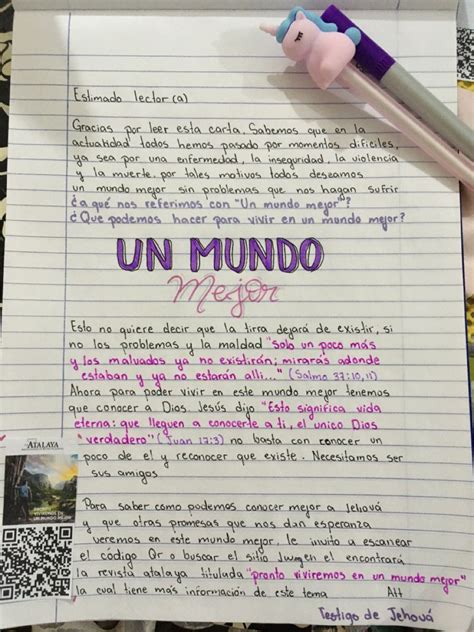 Estimado lector(a)
Gracias por leer esta carta. Sabemos que en la
actualidad todos hemos pasado por momentos dificiles,
ya sea por una enfermedad, la inseguridad, la violencia
y la muerte, por tales motivos todos deseamos
un mundo mejor sin problemas que nos hagan sufrir
¿a qué nos referimos con "Un mundo mejor"?
¿Qué podemos hacer para vivir en un mundo mejor?
UN MUNDO
Mejor
Esto no quiere decir que la tirra dejará de existir, si
no los problemas y la maldad "Solo un poco más
y los malvados ya no existirán; mirarás adonde
estaban y ya no estarán allí..." (Salmo 37:10,11)
Ahora para poder vivir en este mundo mejor tenemos
que conocer a Dios. Jesús dijo "Esto significa vida
eterna: que lleguen a conocerte a ti, el único Dios
verdadero" (Juan 17:3) no basta con conocer un
poco de el y reconocer que existe. Necesitamos ser
sus amigos
ATALAYA
PRONTO
VIVIREMOS EN
UN MUNDO MEJOR
Para saber como podemos conocer mejor a Jehová
y que otras promesas que nos dan esperanza
veremos en este mundo mejor, le invito a escanear
el código Qr o buscar el sitio Jw.org el encontrará
la revista atalaya titulada "pronto viviremos en un mundo mejor"
la cual tiene más información de este tema
Att
Testigo de Jehová